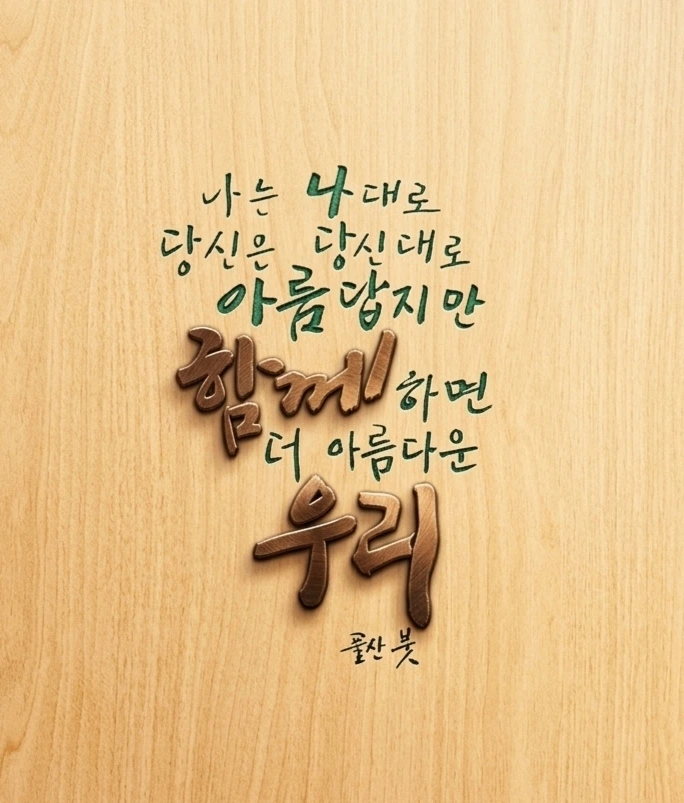 나는 나대로
당신은 당신대로
아름답지만
함께 하면
더 아름다운
우리
풀산 붓